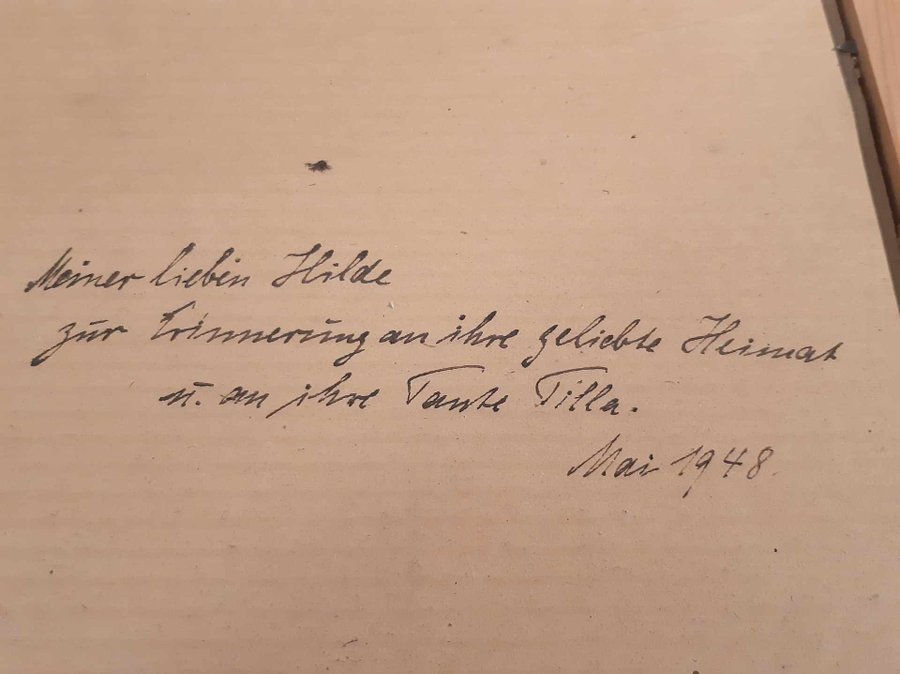 Meiner lieben Hilde
zur Erinnerung an ihre geliebte Heimat
u. an ihre Tante Tilla.
Mai 1948.